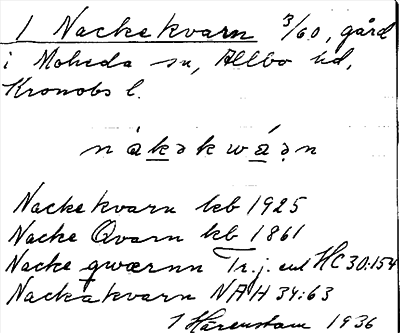 1 Nackekvarn 3/60, gård
i Moheda sn, Allbo hd,
Kronobs l.
nákəkwáən
Nackekvarn kb 1925
Nacke Qvarn kb 1861
Nacke qwærnn Tr.j. enl HC 30:154
Nackakvarn NAH 34:63
J Härenstam 1936